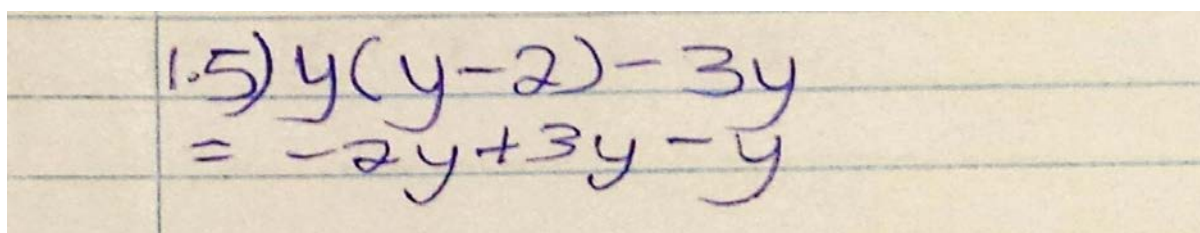 1.5) y(y-2)-3y
= -2y+3y-y